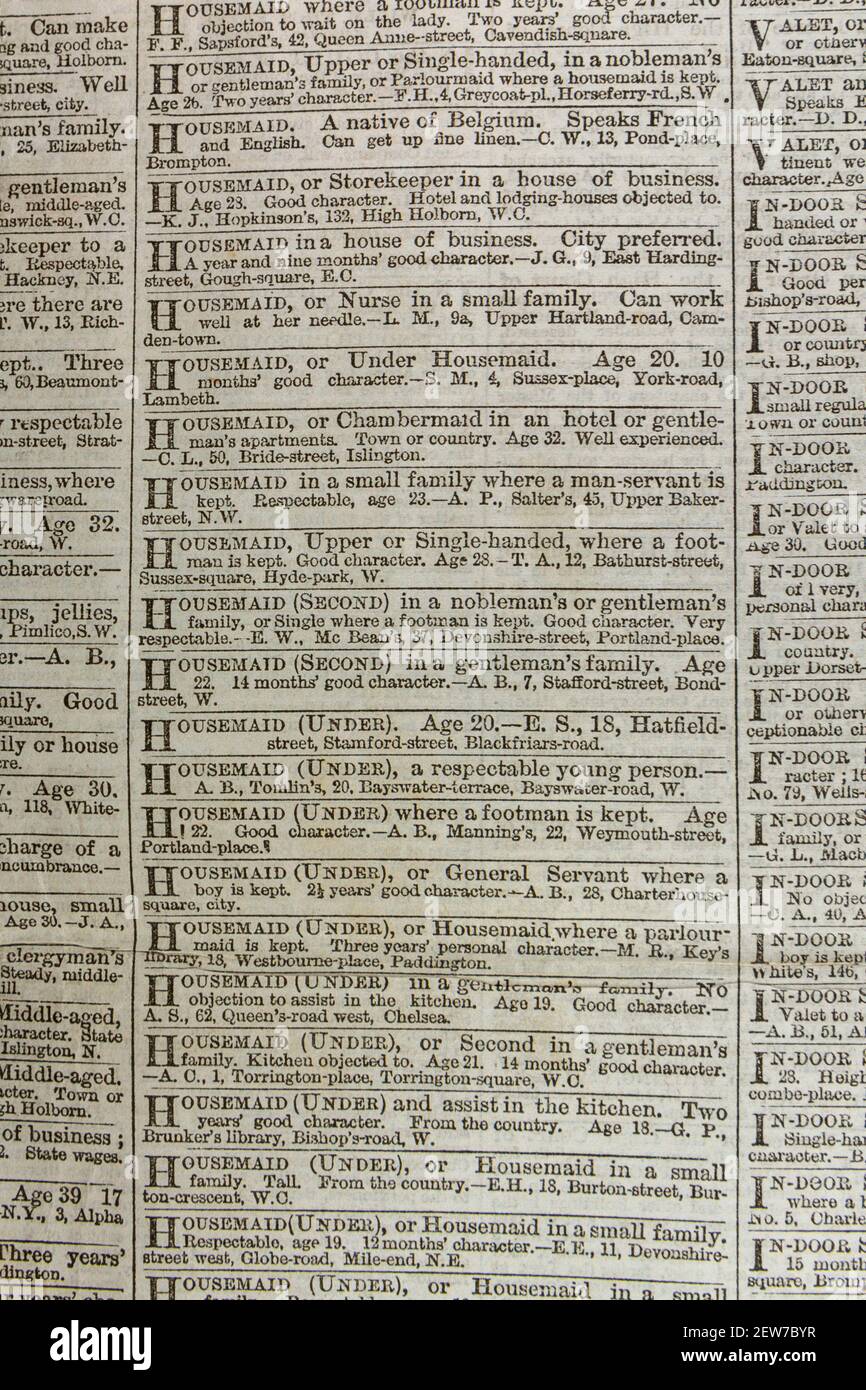 t. Can make
ng and good cha-
square, Holborn.
siness. Well
-street, city.
man's family.
, 25, Elizabeth-
gentleman's
le, middle-aged.
nswick-sq., W.C.
ekeeper to a
t. Respectable,
Hackney, N.E.
ere there are
T. W., 13, Rich-
ept.. Three
s, 60, Beaumont-
y respectable
on-street, Strat-
iness, where
y. Age 32.
-road, W.
character.—
ups, jellies,
, Pimlico, S.W.
er.—A. B.,
mily. Good
square,
ily or house
re.
y. Age 30.
n, 118, White-
charge of a
ncumbrance.—
house, small
Age 30.—J. A.,
clergyman's
Steady, middle-
ill.
Middle-aged,
character. State
Islington, N.
Middle-aged.
acter. Town or
gh Holborn.
of business ;
2. State wages.
Age 39 17
-N.Y., 3, Alpha
Three years'
dington.
HOUSEMAID where a footman is kept. Age 27. No
objection to wait on the lady. Two years' good character.—
F. F., Sapsford's, 42, Queen Anne-street, Cavendish-square.
HOUSEMAID, Upper or Single-handed, in a nobleman's
or gentleman's family, or Parlourmaid where a housemaid is kept.
Age 26. Two years' character.—F.H., 4, Greycoat-pl., Horseferry-rd., S.W.
HOUSEMAID. A native of Belgium. Speaks French
and English. Can get up fine linen.—C. W., 13, Pond-place,
Brompton.
HOUSEMAID, or Storekeeper in a house of business.
Age 23. Good character. Hotel and lodging-houses objected to.
—K. J., Hopkinson's, 132, High Holborn, W.C.
HOUSEMAID in a house of business. City preferred.
A year and nine months' good character.—J. G., 9, East Harding-
street, Gough-square, E.C.
HOUSEMAID, or Nurse in a small family. Can work
well at her needle.—L. M., 9a, Upper Hartland-road, Cam-
den-town.
HOUSEMAID, or Under Housemaid. Age 20. 10
months' good character.—S. M., 4, Sussex-place, York-road,
Lambeth.
HOUSEMAID, or Chambermaid in an hotel or gentle-
man's apartments. Town or country. Age 32. Well experienced.
—C. L., 50, Bride-street, Islington.
HOUSEMAID in a small family where a man-servant is
kept. Respectable, age 23.—A. P., Salter's, 45, Upper Baker-
street, N.W.
HOUSEMAID, Upper or Single-handed, where a foot-
man is kept. Good character. Age 28.—T. A., 12, Bathurst-street,
Sussex-square, Hyde-park, W.
HOUSEMAID (SECOND) in a nobleman's or gentleman's
family, or Single where a footman is kept. Good character. Very
respectable.—E. W., Mc Bean's, 37, Devonshire-street, Portland-place.
HOUSEMAID (SECOND) in a gentleman's family. Age
22. 14 months' good character.—A. B., 7, Stafford-street, Bond-
street, W.
HOUSEMAID (UNDER). Age 20.—E. S., 18, Hatfield-
street, Stamford-street, Blackfriars-road.
HOUSEMAID (UNDER), a respectable young person.—
A. B., Tomlin's, 20, Bayswater-terrace, Bayswater-road, W.
HOUSEMAID (UNDER) where a footman is kept. Age
22. Good character.—A. B., Manning's, 22, Weymouth-street,
Portland-place.
HOUSEMAID (UNDER), or General Servant where a
boy is kept. 2½ years' good character.—A. B., 28, Charterhouse-
square, city.
HOUSEMAID (UNDER), or Housemaid where a parlour-
maid is kept. Three years' personal character.—M. R., Key's
library, 18, Westbourne-place, Paddington.
HOUSEMAID (UNDER) in a gentleman's family. No
objection to assist in the kitchen. Age 19. Good character.—
A. S., 62, Queen's-road west, Chelsea.
HOUSEMAID (UNDER), or Second in a gentleman's
family. Kitchen objected to. Age 21. 14 months' good character.
—A. C., 1, Torrington-place, Torrington-square, W.C.
HOUSEMAID (UNDER) and assist in the kitchen. Two
years' good character. From the country. Age 18.—G. P.,
Brunker's library, Bishop's-road, W.
HOUSEMAID (UNDER), or Housemaid in a small
family. Tall. From the country.—E.H., 18, Burton-street, Bur-
ton-crescent, W.C.
HOUSEMAID (UNDER), or Housemaid in a small family.
Respectable, age 19. 12 months' character.—E.E., 11, Devonshire-
street west, Globe-road, Mile-end, N.E.
HOUSEMAID (UNDER), or Housemaid in a small
VALET, or
or otherw
Eaton-square,
VALET an
Speaks E
racter.—D. D.,
VALET, or
tinent we
character. Age
IN-DOOR S
handed or
good character
IN-DOOR S
Good per
Bishop's-road,
IN-DOOR S
or country
—G. B., shop,
IN-DOOR
small regula
Town or count
IN-DOOR
character.
Paddington.
IN-DOOR S
or Valet to
Age 30. Good
IN-DOOR
of 1 very,
personal chara
IN-DOOR S
country.
Upper Dorset-
IN-DOOR
or otherw
ceptionable ch
IN-DOOR S
racter ; 16
No. 79, Wells-
IN-DOOR S
family, or
—G. L., Macb
IN-DOOR S
No objec
C. A., 40, A
IN-DOOR
boy is kept
White's, 146,
IN-DOOR S
Valet to a
—A. B., 51, Al
IN-DOOR S
23. Heigh
combe-place.
IN-DOOR S
Single-han
character.—B.
IN-DOOR S
where a b
No. 5, Charle
IN-DOOR S
15 month
square, Brom
alamy
Image ID: 2EW7BYR
www.alamy.com